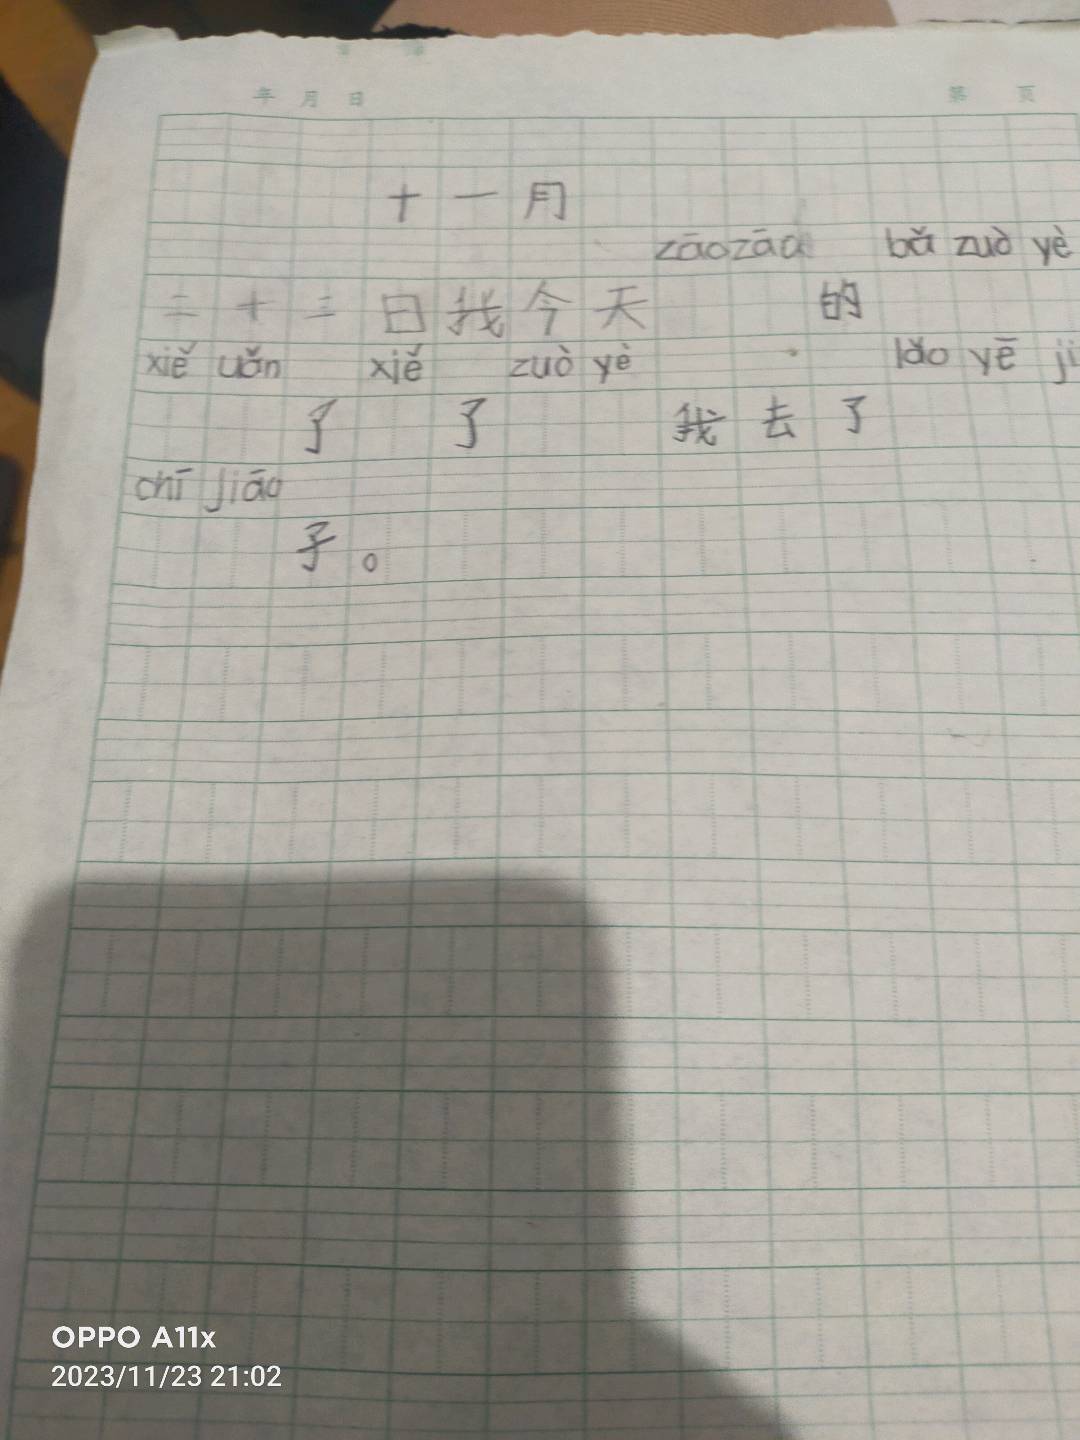 年 月 日 第 页
十一月
zāozāo bǎ zuò yè
二十三日我今天 的
xiě uǎn xiě zuò yè lǎo yē ji
了 了 我去了
chī jiāo
子。
OPPO A11x
2023/11/23 21:02